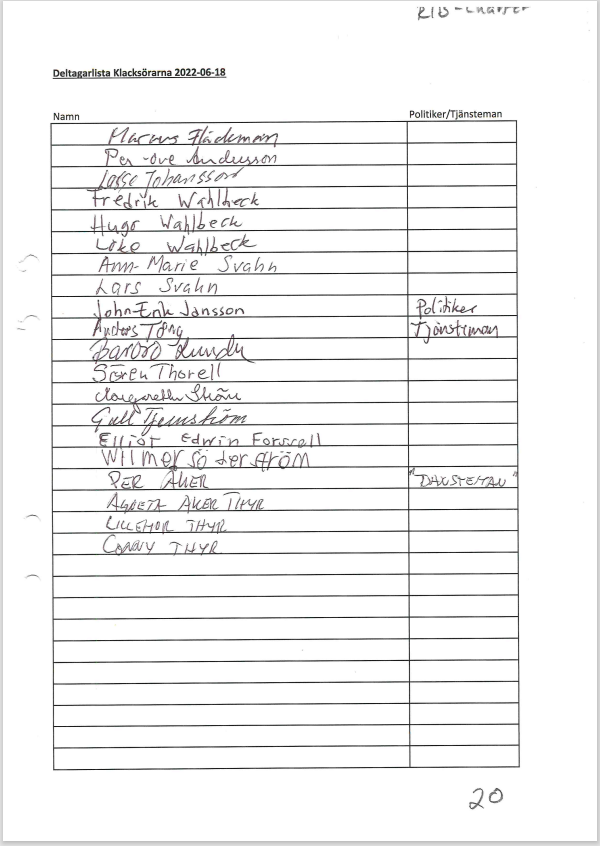 RIB-Charter
Deltagarlista Klacksörarna 2022-06-18
Namn Politiker/Tjänsteman
Marcus Flädeman
Per-ove Andersson
Lasse Johansson
Fredrik Wahlbeck
Hugo Wahlbeck
Loke Wahlbeck
Ann-Marie Svahn
Lars Svahn
John-Erik Jansson Politiker
Anders Tjänsteman
Barbro Lundu
Sören Thorell
Margaretha
Gull Tjernström
Elliot Edwin Forssell
Wilmer Söderström
PER ÅKER "DANSTEMAN"
AGNETA ÅKER THYR
LILLEMOR THYR
CONNY THYR
20